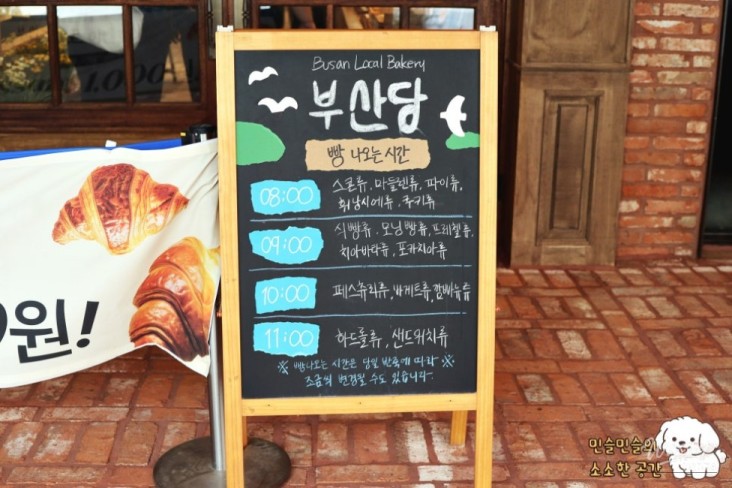 Busan Local Bakery
부산당
빵 나오는 시간
08:00 스콘류, 마들렌류, 파이류,
휘낭시에류, 쿠키류
09:00 식빵류, 모닝빵류, 프레첼류,
치아바타류, 포카치아류
10:00 페스츄리류, 바게트류, 깜빠뉴류
11:00 하드롤류, 샌드위치류
※ 빵나오는 시간은 당일 반죽에 따라 ※
조금씩 변경될 수도 있습니다.
원!
민슬민슬의
소소한 공간